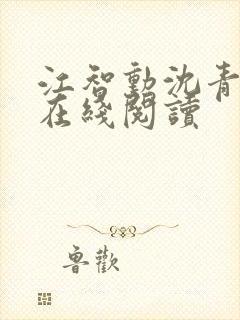 江智勳沈青
在綫閱讀
魯歡